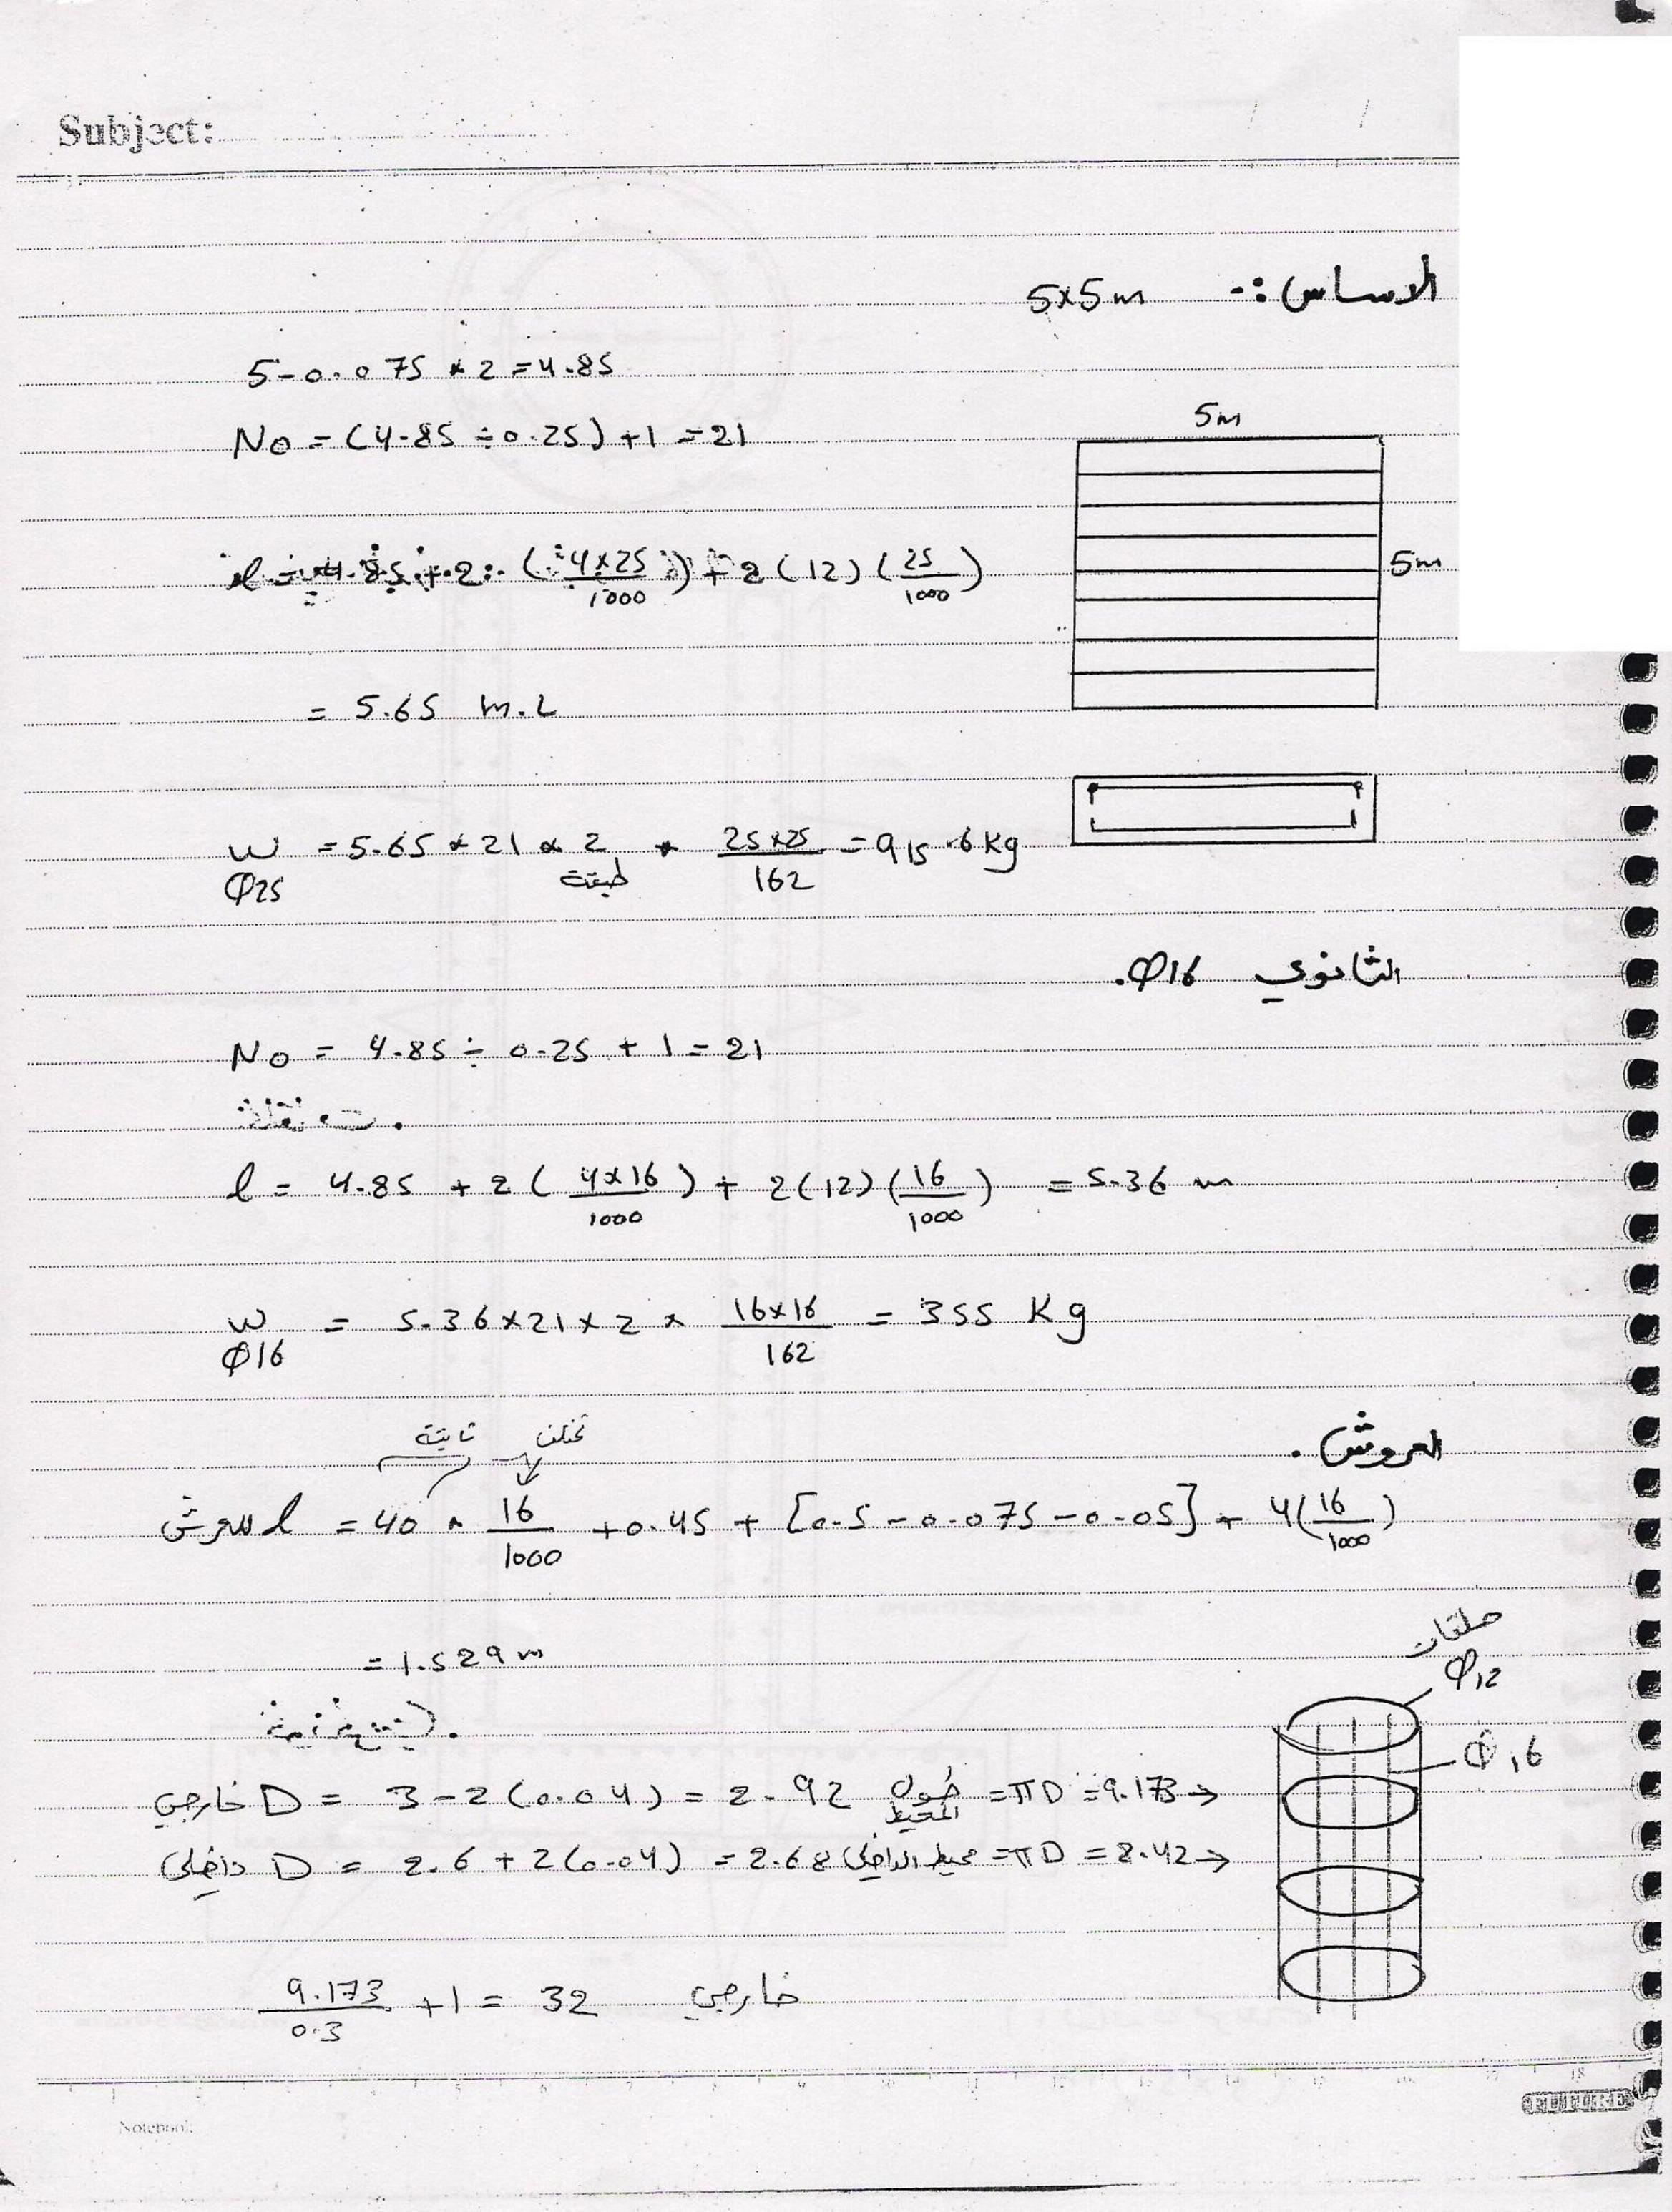 Subject:
الاساس :- 5x5m
5-0.075 * 2 = 4.85
No = (4.85 ÷ 0.25) + 1 = 21
5m
5m
l = 4.85 + 2 (4x25/1000) + 2(12) (25/1000)
= 5.65 m.L
W Φ25 = 5.65 * 21 * 2 طبقة * 25x25/162 = 915.6 Kg
الثانوي Φ16.
No = 4.85 ÷ 0.25 + 1 = 21
l = 4.85 + 2 (4x16/1000) + 2(12) (16/1000) = 5.36 m
W Φ16 = 5.36 x 21 x 2 x 16x16/162 = 355 Kg
العروش.
ثابتة تختلف
l للعروش = 40 * 16/1000 + 0.45 + [0.5 - 0.075 - 0.05] + 4(16/1000)
= 1.529 m
حلقات Φ12
Φ16
D خارجي = 3 - 2 (0.04) = 2.92 طول المحيط = πD = 9.173 →
D داخلي = 2.6 + 2 (0.04) = 2.68 محيط الداخلي = πD = 8.42 →
9.173/0.3 + 1 = 32 خارجي
Notebook
FUTURE